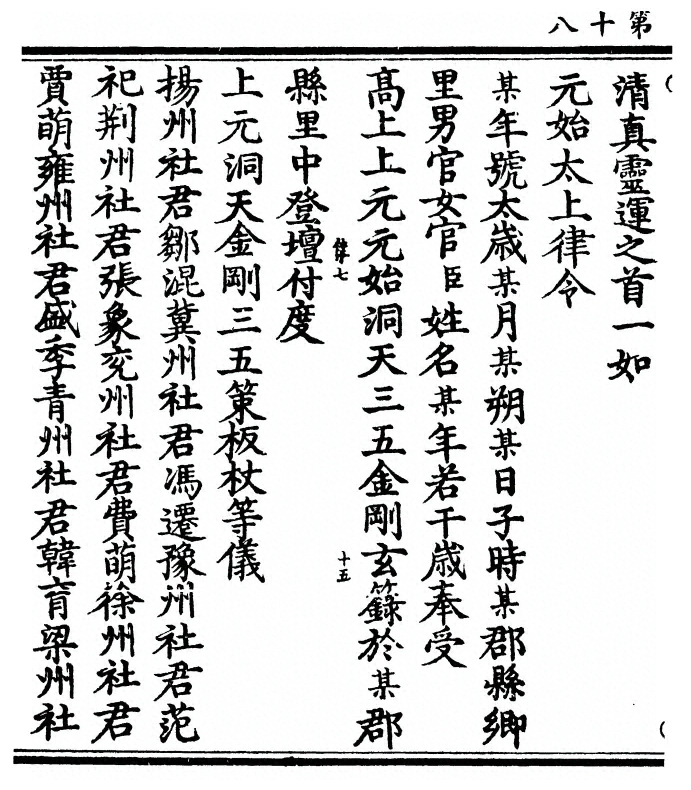 第十八
清真靈運之首一如
元始太上律令
某年號太歲某月某朔某日子時某郡縣鄉
里男官女官臣姓名某年若干歲奉受
高上上元元始洞天三五金剛玄籙於某郡
十五
縣里中登壇付度
體七
上元洞天金剛三五策板杖等儀
揚州社君鄒混冀州社君馮遷豫州社君范
祀荆州社君張象兖州社君費萌徐州社君
賈萌雍州社君盛季青州社君韓育梁州社